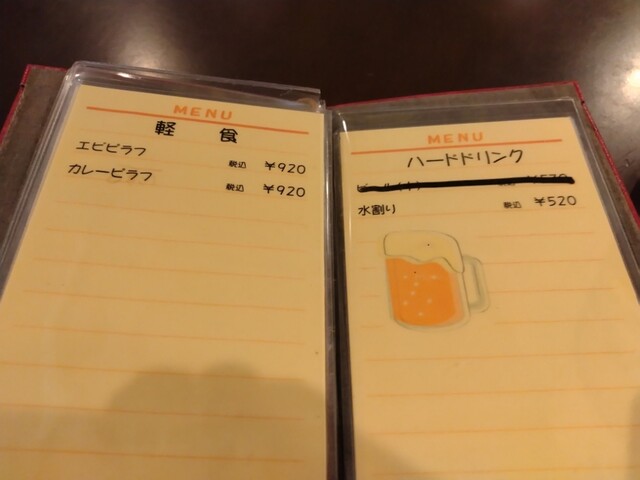 MENU
軽 食
エビピラフ 税込 ¥920
カレーピラフ 税込 ¥920
MENU
ハードドリンク
水割り 税込 ¥520